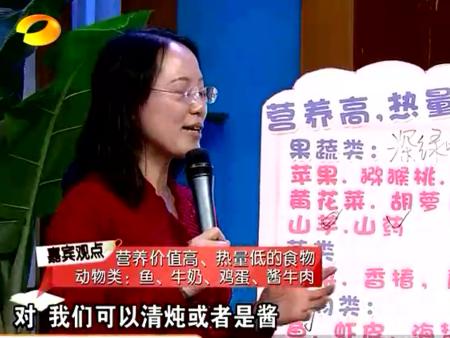 营养高,热量
果蔬类:深绿
苹果.猕猴桃.
黄花菜.胡萝
山芋.山药
嘉宾观点
营养价值高、热量低的食物
动物类:鱼、牛奶、鸡蛋、酱牛肉
.香椿,
物类:
鱼.虾皮.海
对 我们可以清炖或者是酱